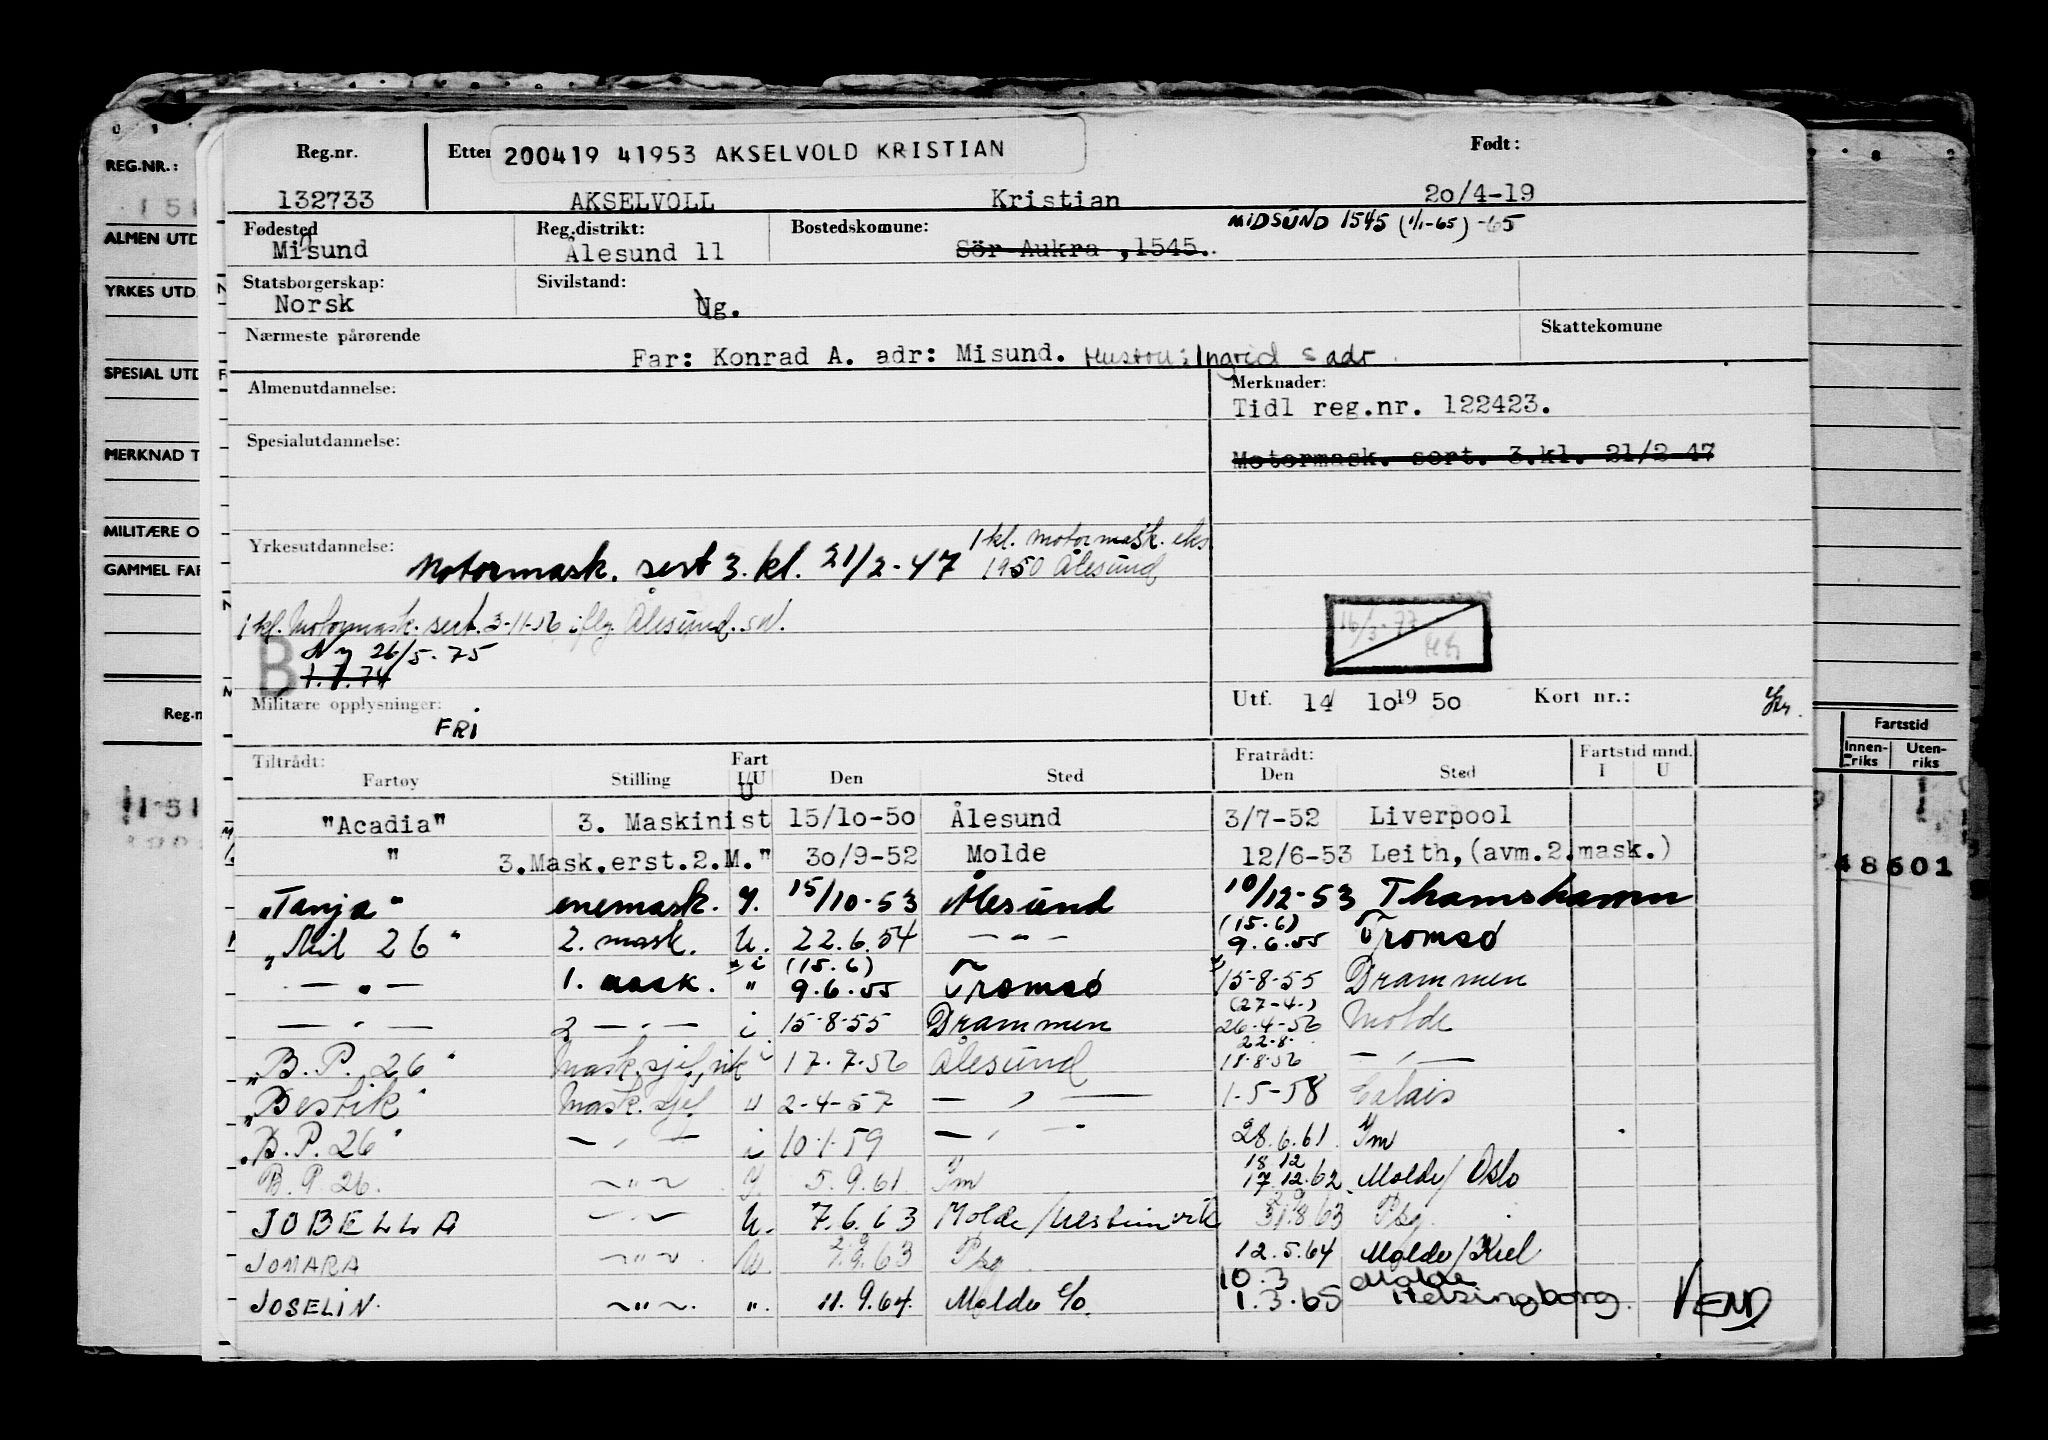 REG.NR.:
ALMEN UTD
YRKES UTD
SPESIAL UTD
MERKNAD T
MILITÆRE O
GAMMEL FAR
Reg.n
Reg.nr. Etter 200419 41953 AKSELVOLD KRISTIAN Født:
132733 AKSELVOLL Kristian 20/4-19
Fødested Reg.distrikt: Bostedskomune: MIDSUND 1545 (1/1-65) -65
Misund Ålesund 11 Sör Aukra ,1545.
Statsborgerskap: Sivilstand:
Norsk Ug.
Nærmeste pårørende Skattekomune
Far: Konrad A. adr: Misund. Hustru: Ingrid s adr
Almenutdannelse: Merknader:
Tidl reg.nr. 122423.
Spesialutdannelse:
Motormask. sert. 3.kl. 21/2-47
Yrkesutdannelse: Motormask. sert 3. kl. 21/2-47 1 kl. motormask. eks. 1950 Ålesund
1 kl. Motormask. sert. 3-11-56 iflg. Ålesund. sd.
B Ny 26/5-75
1.7.74
16/3-77
Militære opplysninger: Utf. 14 10 19 50 Kort nr.:
FRI
Tiltrådt: Fart Fratrådt: Fartstid mnd.
Fartøy Stilling I/U Den Sted Den Sted I U
U
"Acadia" 3. Maskinist 15/10-50 Ålesund 3/7-52 Liverpool
" 3.Mask.erst.2.M." 30/9-52 Molde 12/6-53 Leith,(avm.2.mask.)
"Tanja" enemask. Y. 15/10-53 Ålesund 10/12-53 Thamshamn
"Mil 26" 2. mask. U. 22.6.54 — " — (15.6) 9.6.55 Tromsø
— " — 1. mask. " i (15.6) 9.6.55 Tromsø 15-8-55 Drammen
— " — 2 — " — i 15-8-55 Drammen (27-4-) 26-4-56 Molde
"B.P. 26" Mask.sjef, vik i 17.7.56 Ålesund 22.8. 18.8.56 — " —
"Bestik" Mask.sjef u 2-4-57 — " — 1-5-58 Calais
"B.P. 26" — " — i 10.1.59 — " — 28.6.61 Ym
B.P. 26. — " — Y. 5.9.61 Ym 18 12 17.12.62 Molde/Oslo
JOBELLA — " — U. 7.6.63 Molde/ 31.8.63 Psg.
JOMARA — " — U. 2.9.63 Psg 12.5.64 Molde/Kiel
JOSELIN. — " — ". 11.9.64. Molde 10.3 1.3.65 Molde Helsingborg. VEND
Fartstid
Innenriks Utenriks
48601